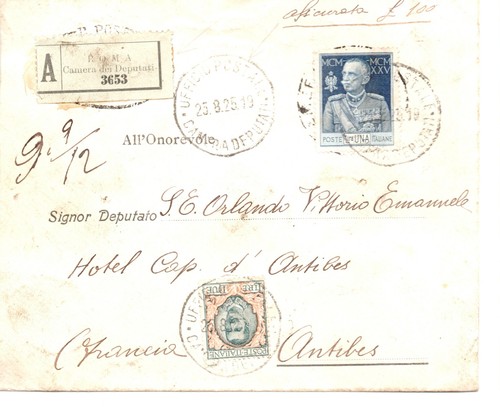 assicurata £ 100
ROMA
Camera dei Deputati
A
3653
UFFICIO POSTALE
25.8.25.19
CAMERA DEPUTATI
MCM
XXV
POSTE
UNA
ITALIANE
9 9/12
All'Onorevole
Signor Deputato S. E. Orlando Vittorio Emanuele
Hotel Cap. d' Antibes
LIRE DUE
POSTE ITALIANE
(Francia) Antibes